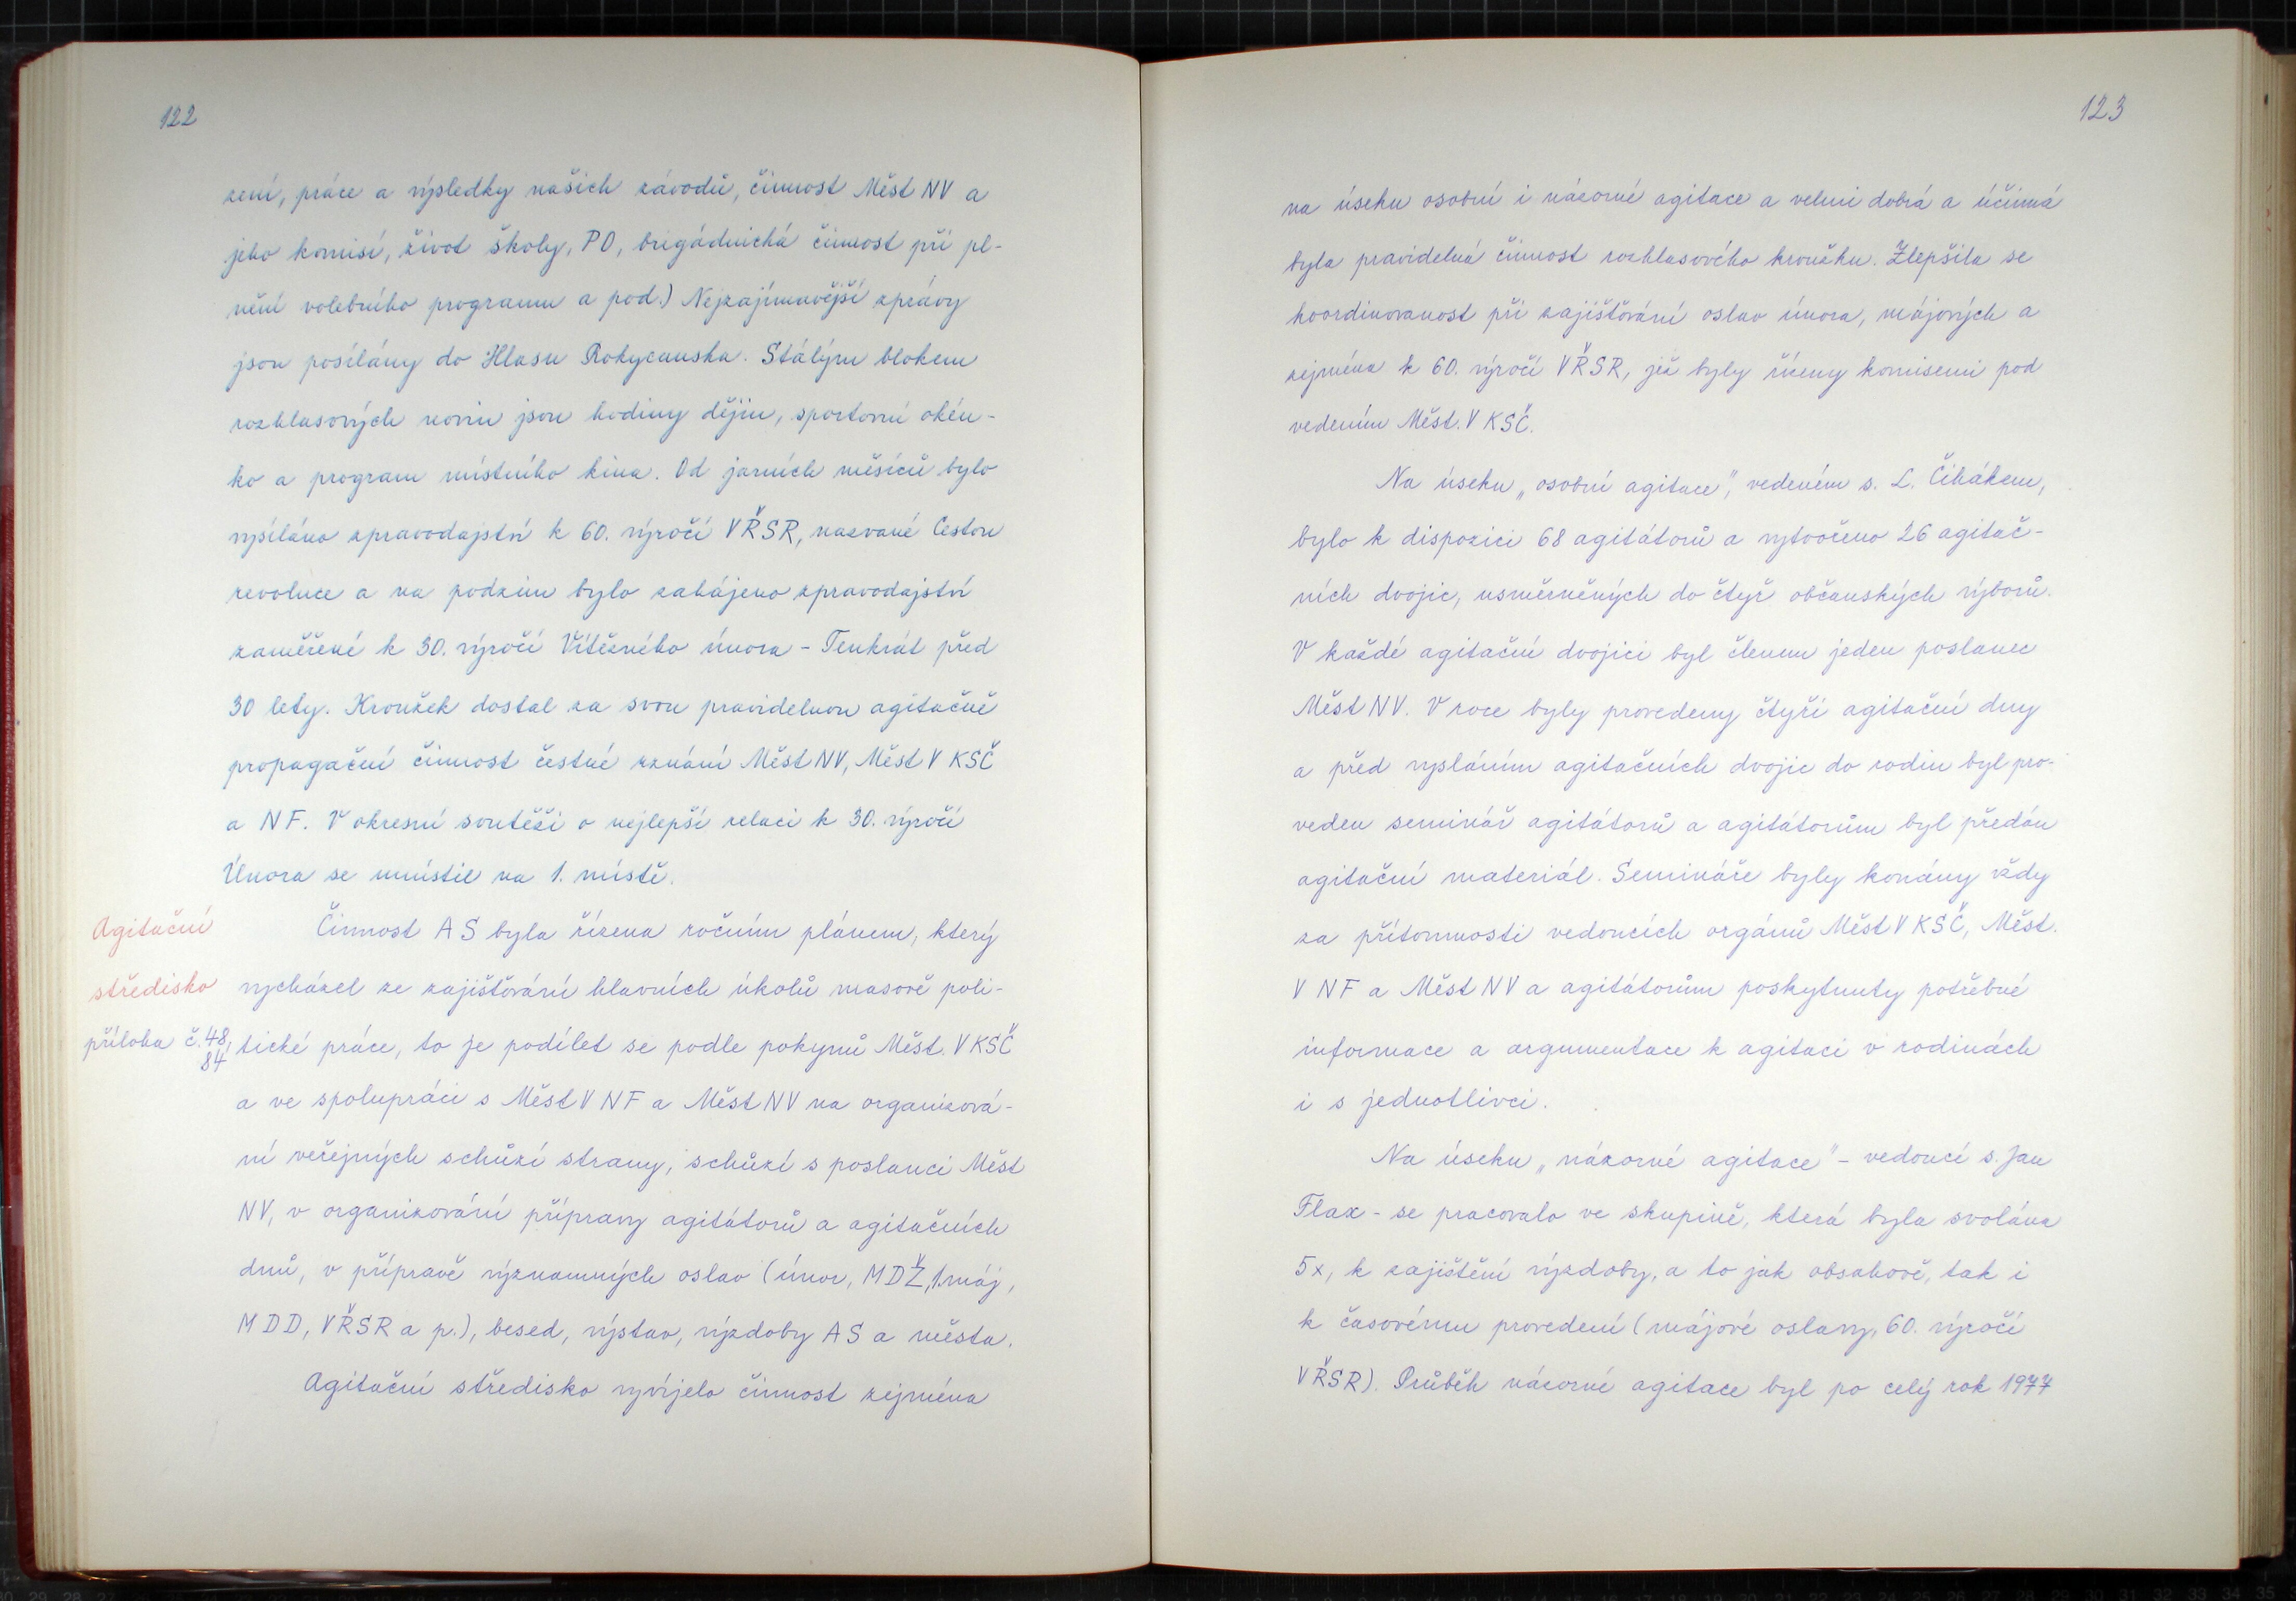 122
zení, práce a výsledky našich závodů, činnost Měst NV a
jeho komisí, život školy, PO, brigádnická činnost při pl-
nění volebního programu a pod.) Nejzajímavější zprávy
jsou posílány do Hlasu Rokycanska. Stálým blokem
rozhlasových novin jsou hodiny dějin, sportovní okén-
ko a program místního kina. Od jarních měsíců bylo
vysíláno zpravodajství k 60. výročí VŘSR, nazvané Cestou
revoluce a na podzim bylo zahájeno zpravodajství
zaměřené k 30. výročí Vítězného února - Tenkrát před
30 lety. Kroužek dostal za svou pravidelnou agitačně
propagační činnost čestné uznání Měst NV, Měst V KSČ
a NF. V okresní soutěži o nejlepší relaci k 30. výročí
Února se umístil na 1. místě.
Agitační
středisko
příloha č. 48,
84
Činnost AS byla řízena ročním plánem, který
vycházel ze zajišťování hlavních úkolů masově poli-
tické práce, to je podílet se podle pokynů Měst. V KSČ
a ve spolupráci s Měst V NF a Měst NV na organizová-
ní veřejných schůzí strany, schůzí s poslanci Měst
NV, v organizování přípravy agitátorů a agitačních
dnů, v přípravě významných oslav (únor, MDŽ, 1. máj,
MDD, VŘSR a p.), besed, výstav, výzdoby AS a města.
Agitační středisko vyvíjelo činnost zejména
123
na úseku osobní i názorné agitace a velmi dobrá a účinná
byla pravidelná činnost rozhlasového kroužku. Zlepšila se
koordinovanost při zajišťování oslav února, májových a
zejména k 60. výročí VŘSR, jež byly řízeny komisemi pod
vedením Měst. V KSČ.
Na úseku „osobní agitace", vedeném s. L. Čihákem,
bylo k dispozici 68 agitátorů a vytvořeno 26 agitač-
ních dvojic, usměrněných do čtyř občanských výborů.
V každé agitační dvojici byl členem jeden poslanec
Měst NV. V roce byly provedeny čtyři agitační dny
a před vysláním agitačních dvojic do rodin byl pro-
veden seminář agitátorů a agitátorům byl předán
agitační materiál. Semináře byly konány vždy
za přítomnosti vedoucích orgánů Měst V KSČ, Měst.
V NF a Měst NV a agitátorům poskytnuty potřebné
informace a argumentace k agitaci v rodinách
i s jednotlivci.
Na úseku „názorné agitace" - vedoucí s. Jan
Flax - se pracovalo ve skupině, která byla svolána
5x, k zajištění výzdoby, a to jak obsahově, tak i
k časovému provedení (májové oslavy, 60. výročí
VŘSR). Průběh názorné agitace byl po celý rok 1977